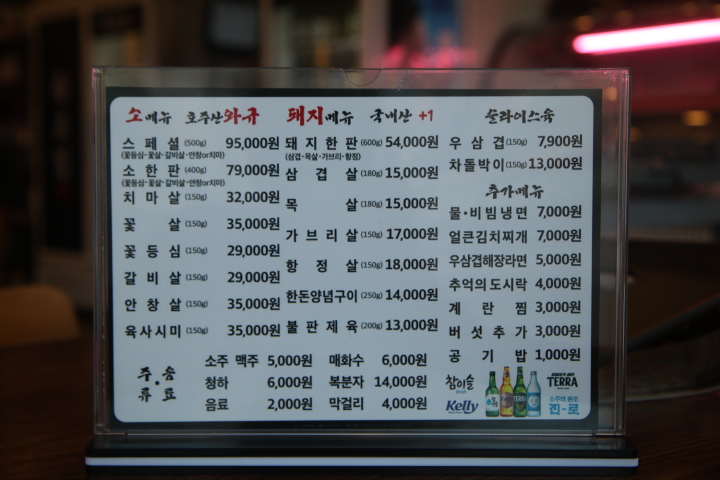 소메뉴 호주산와규
스페셜 (500g) 95,000원
(꽃등심·꽃살·갈비살·안창or치마)
소한판 (400g) 79,000원
(꽃등심·꽃살·갈비살·안창or치마)
치마살 (150g) 32,000원
꽃살 (150g) 35,000원
꽃등심 (150g) 29,000원
갈비살 (150g) 29,000원
안창살 (150g) 35,000원
육사시미 (150g) 35,000원
돼지메뉴 국내산 +1
돼지한판 (600g) 54,000원
(삼겹·목살·가브리·항정)
삼겹살 (180g) 15,000원
목살 (180g) 15,000원
가브리살 (150g) 17,000원
항정살 (150g) 18,000원
한돈양념구이 (250g) 14,000원
불판제육 (200g) 13,000원
슬라이스육
우삼겹 (150g) 7,900원
차돌박이 (150g) 13,000원
추가메뉴
물·비빔냉면 7,000원
얼큰김치찌개 7,000원
우삼겹해장라면 5,000원
추억의도시락 4,000원
계란찜 3,000원
버섯추가 3,000원
공기밥 1,000원
주·음료
소주 맥주 5,000원 매화수 6,000원
청하 6,000원 복분자 14,000원
음료 2,000원 막걸리 4,000원
참이슬
fresh
Kelly
TERRA
소주의 원조
진-로